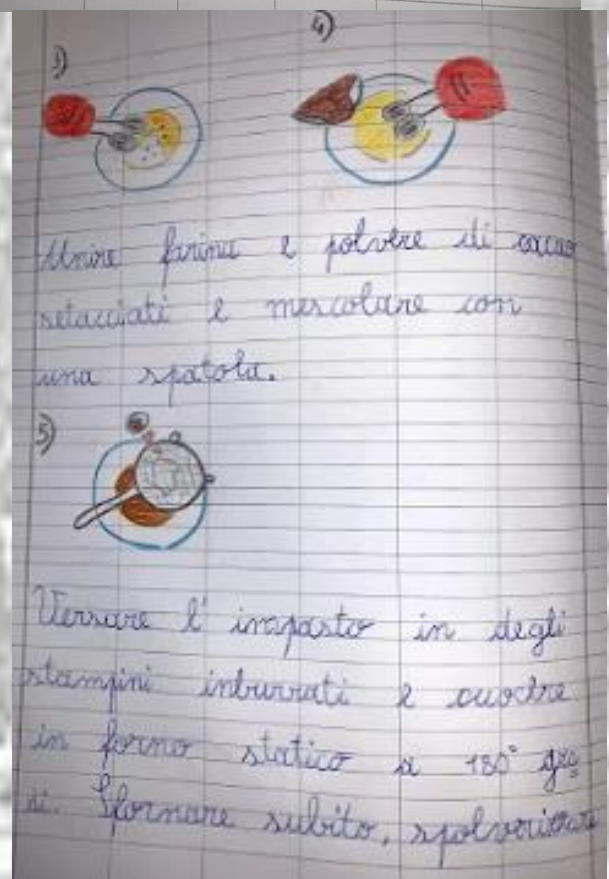 3)
4)
Unire farina e polvere di cacao
setacciati e mescolare con
una spatola.
5)
Versare l'impasto in degli
stampini imburrati e cuocere
in forno statico a 180° gra
di. Sfornare subito, spolverizzare